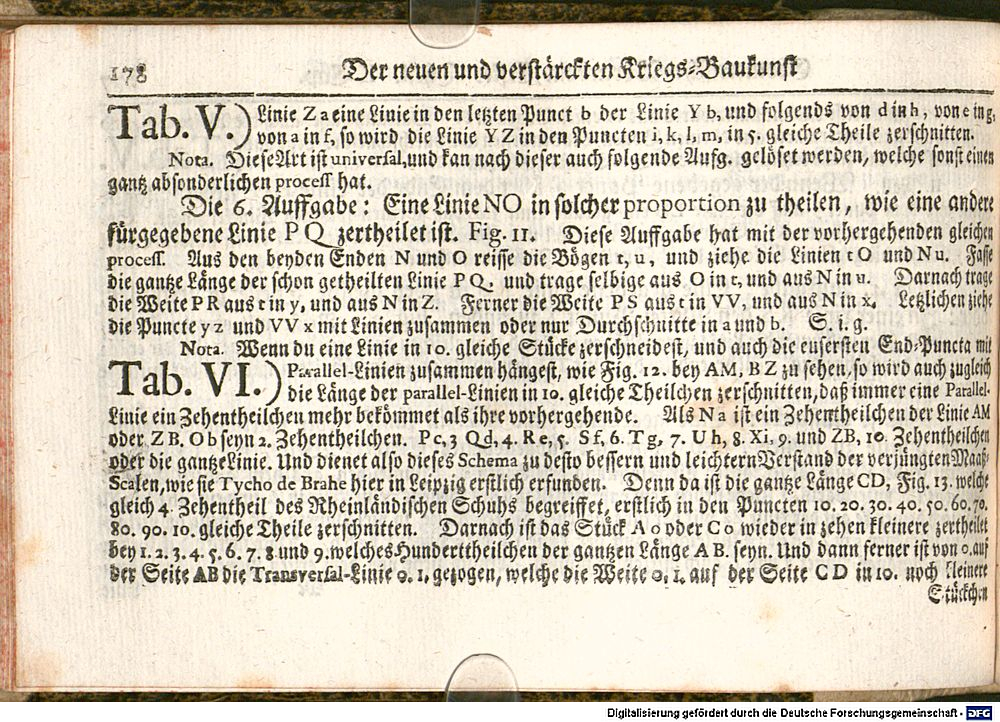 178 Der neuen und verstärckten Kriegs-Baukunst
Tab. V.) Linie Z a eine Linie in den letzten Punct b der Linie Y b, und folgends von d in h, von e in g,
von a in f, so wird die Linie Y Z in den Puncten i, k, l, m, in 5. gleiche Theile zerschnitten.
Nota. Diese Art ist universal, und kan nach dieser auch folgende Aufg. gelöset werden, welche sonst einen
gantz absonderlichen process hat.
Die 6. Auffgabe: Eine Linie NO in solcher proportion zu theilen, wie eine andere
fürgegebene Linie P Q zertheilet ist. Fig. 11. Diese Auffgabe hat mit der vorhergehenden gleichen
process. Aus den beyden Enden N und O reisse die Bögen t, u, und ziehe die Linien t O und N u. Fasse
die gantze Länge der schon getheilten Linie P Q, und trage selbige aus O in t, und aus N in u. Darnach trage
die Weite P R aus t in y, und aus N in Z. Ferner die Weite P S aus t in VV, und aus N in x. Letzlichen ziehe
die Puncte y z und VV x mit Linien zusammen oder nur Durchschnitte in a und b. S. i. g.
Nota. Wenn du eine Linie in 10. gleiche Stücke zerschneidest, und auch die eusersten End-Puncta mit
Tab. VI.) Parallel-Linien zusammen hängest, wie Fig. 12. bey AM, B Z zu sehen, so wird auch zugleich
die Länge der parallel-Linien in 10. gleiche Theilchen zerschnitten, daß immer eine Parallel-
Linie ein Zehentheilchen mehr bekömmet als ihre vorhergehende. Als N a ist ein Zehentheilchen der Linie AM
oder Z B, O b seyn 2. Zehentheilchen. P c, 3 Q d, 4. R e, 5. S f, 6. T g, 7. U h, 8. X i, 9. und ZB, 10. Zehentheilchen
oder die gantze Linie. Und dienet also dieses Schema zu desto bessern und leichtern Verstand der verjüngten Maaß-
Scalen, wie sie Tycho de Brahe hier in Leipzig erstlich erfunden. Denn da ist die gantze Länge CD, Fig. 13. welche
gleich 4. Zehentheil des Rheinländischen Schuhs begreiffet, erstlich in den Puncten 10. 20. 30. 40. 50. 60. 70.
80. 90. 10. gleiche Theile zerschnitten. Darnach ist das Stück A o oder C o wieder in zehen kleinere zertheilet
bey 1. 2. 3. 4. 5. 6. 7. 8 und 9. welches Hunderttheilchen der gantzen Länge A B. seyn. Und dann ferner ist von 0. auf
der Seite AB die Transversal-Linie 0. 1. gezogen, welche die Weite 0. 1. auf der Seite C D in 10. noch kleinere
Stückchen
Digitalisierung gefördert durch die Deutsche Forschungsgemeinschaft - DFG